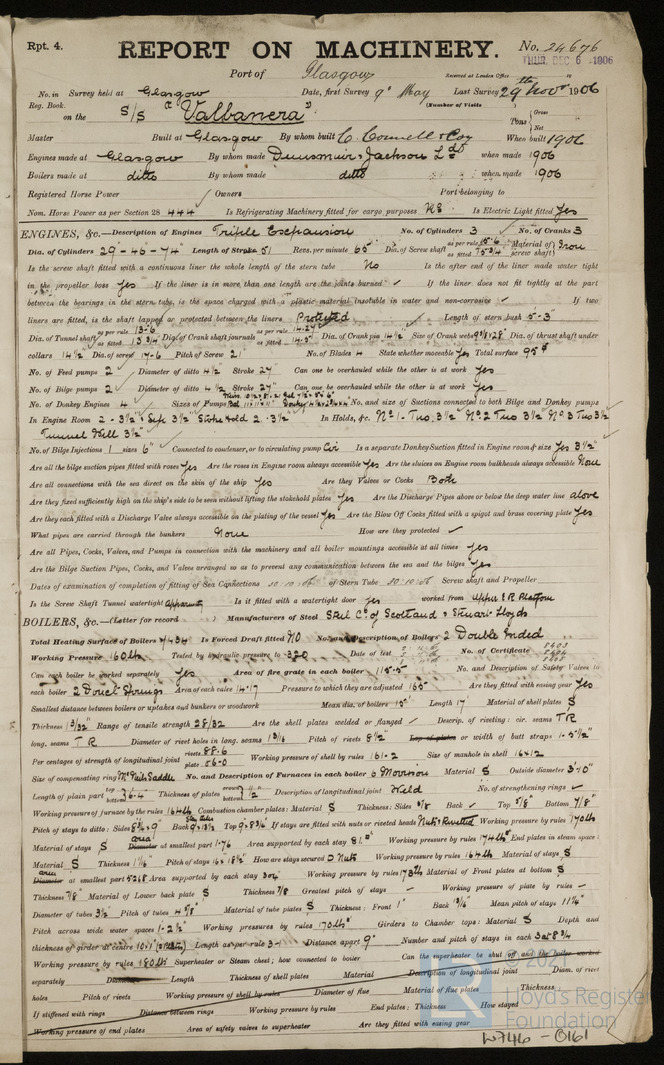 Rpt. 4.
REPORT ON MACHINERY.
No. 24676
THUR. DEC 6 1906
Port of Glasgow
Received at London Office
No. in Survey held at Glasgow Date, first Survey 9th May Last Survey 29th Novr 1906
Reg. Book.
(Number of Visits
on the S/S "Valbanera"
Tons Gross Net
Master Built at Glasgow By whom built C. Connell & Coy When built 1906
Engines made at Glasgow By whom made Dunsmuir & Jackson Ld when made 1906
Boilers made at ditto By whom made ditto when made 1906
Registered Horse Power Owners Port belonging to
Nom. Horse Power as per Section 28 444 Is Refrigerating Machinery fitted for cargo purposes No Is Electric Light fitted Yes
ENGINES, &c.—Description of Engines Triple Expansion No. of Cylinders 3 No. of Cranks 3
Dia. of Cylinders 29 - 46 - 74" Length of Stroke 51 Revs. per minute 65 Dia. of Screw shaft as per rule 15·6 as fitted 15 3/4 Material of screw shaft Iron
Is the screw shaft fitted with a continuous liner the whole length of the stern tube No Is the after end of the liner made water tight
in the propeller boss yes If the liner is in more than one length are the joints burned ✓ If the liner does not fit tightly at the part
between the bearings in the stern tube, is the space charged with a plastic material insoluble in water and non-corrosive ✓ If two
liners are fitted, is the shaft lapped or protected between the liners Protected Length of stern bush 5-3"
Dia. of Tunnel shaft as per rule 13-6 as fitted 13 3/4 Dia. of Crank shaft journals as per rule 14·27 as fitted 14·5" Dia. of Crank pin 14 1/2" Size of Crank webs Dia. of thrust shaft under
collars 14 1/2 Dia. of screw 17-6 Pitch of Screw 21' No. of Blades 4 State whether moveable Yes Total surface 95
No. of Feed pumps 2 Diameter of ditto 4 1/2 Stroke 27" Can one be overhauled while the other is at work yes
No. of Bilge pumps 2 Diameter of ditto 4 1/2 Stroke 27" Can one be overhauled while the other is at work yes
No. of Donkey Engines 4 Sizes of Pumps No. and size of Suctions connected to both Bilge and Donkey pumps
In Engine Room 2 - 3 1/2" 3 1/2" Stokehold 2 · 3 1/2" In Holds, &c. No 1 - Two, 3 1/2 No 2 Two 3 1/2 No 3 Two 3 1/2
Tunnel Well 3 1/2"
No. of Bilge Injections 1 sizes 6" Connected to condenser, or to circulating pump Cir Is a separate Donkey Suction fitted in Engine room & size Yes 3 1/2"
Are all the bilge suction pipes fitted with roses Yes Are the roses in Engine room always accessible Yes Are the sluices on Engine room bulkheads always accessible None
Are all connections with the sea direct on the skin of the ship Yes Are they Valves or Cocks Both
Are they fixed sufficiently high on the ship's side to be seen without lifting the stokehold plates Yes Are the Discharge Pipes above or below the deep water line above
Are they each fitted with a Discharge Valve always accessible on the plating of the vessel Yes Are the Blow Off Cocks fitted with a spigot and brass covering plate Yes
What pipes are carried through the bunkers None How are they protected ✓
Are all Pipes, Cocks, Valves, and Pumps in connection with the machinery and all boiler mountings accessible at all times yes
Are the Bilge Suction Pipes, Cocks, and Valves arranged so as to prevent any communication between the sea and the bilges yes
Dates of examination of completion of fitting of Sea Connections 30·10·06 of Stern Tube 30·10·06 Screw shaft and Propeller
Is the Screw Shaft Tunnel watertight Apparently Is it fitted with a watertight door yes worked from Upper E R Platform
BOILERS, &c.—(Letter for record ) Manufacturers of Steel Steel Co. of Scotland & Stewart Lloyds
Total Heating Surface of Boilers 7434 Is Forced Draft fitted No No. and Description of Boilers 2 Double Ended
Working Pressure 160 lb Tested by hydraulic pressure to 320 Date of test No. of Certificate
Can each boiler be worked separately Yes Area of fire grate in each boiler 115·5 No. and Description of Safety Valves to
each boiler 2 Direct Springs Area of each valve 14·17 Pressure to which they are adjusted 165 Are they fitted with easing gear Yes
Smallest distance between boilers or uptakes and bunkers or woodwork Mean dia. of boilers 15' Length 17' Material of shell plates S
Thickness 1 3/32 Range of tensile strength 28/32 Are the shell plates welded or flanged Descrip. of riveting: cir. seams T R
long. seams T R Diameter of rivet holes in long. seams 1 3/16 Pitch of rivets 8 1/2" Lap of plates or width of butt straps 1-5 1/2"
Per centages of strength of longitudinal joint rivets 88·6 plate 86·0 Working pressure of shell by rules 161·2 Size of manhole in shell 16×12
Size of compensating ring McNeils Saddle No. and Description of Furnaces in each boiler 6 Morrison Material S Outside diameter 3'·10"
Length of plain part top bottom 6·4 Thickness of plates crown bottom 1/2 Description of longitudinal joint Weld No. of strengthening rings ✓
Working pressure of furnace by the rules 164 lb Combustion chamber plates: Material S Thickness: Sides 5/8 Back ✓ Top 5/8" Bottom 7/8"
Pitch of stays to ditto: Sides Back Top If stays are fitted with nuts or riveted heads Nuts & Rivetted Working pressure by rules 170 lb
Material of stays S area Diameter at smallest part 1·76 Area supported by each stay 81 Working pressure by rules 174 lb End plates in steam space:
Material S Thickness 1 1/16" Pitch of stays 16 × 18 1/2" How are stays secured D Nuts Working pressure by rules 164 lb Material of stays S
area Diameter at smallest part 5268 Area supported by each stay 304 Working pressure by rules 173 lb Material of Front plates at bottom S
Thickness 7/8" Material of Lower back plate S Thickness 7/8 Greatest pitch of stays Working pressure of plate by rules
Diameter of tubes 3 1/2 Pitch of tubes 4 5/8" Material of tube plates S Thickness: Front 1" Back 13/16" Mean pitch of stays 11 1/4"
Pitch across wide water spaces 1-2 1/2" Working pressures by rules 170 lb Girders to Chamber tops: Material S Depth and
thickness of girder at centre Length as per rule 3-1 Distance apart 9" Number and pitch of stays in each 3 at 8 3/4
Working pressure by rules 180 lb Superheater or Steam chest; how connected to boiler Can the superheater be shut off and the boiler worked
separately Diameter Length Thickness of shell plates Material Description of longitudinal joint Diam. of rivet
holes Pitch of rivets Working pressure of shell by rules Diameter of flue Material of flue plates Thickness
If stiffened with rings Distance between rings Working pressure by rules End plates: Thickness How stayed
Working pressure of end plates Area of safety valves to superheater Are they fitted with easing gear
Lloyd's Register
Foundation
W746 - 0161